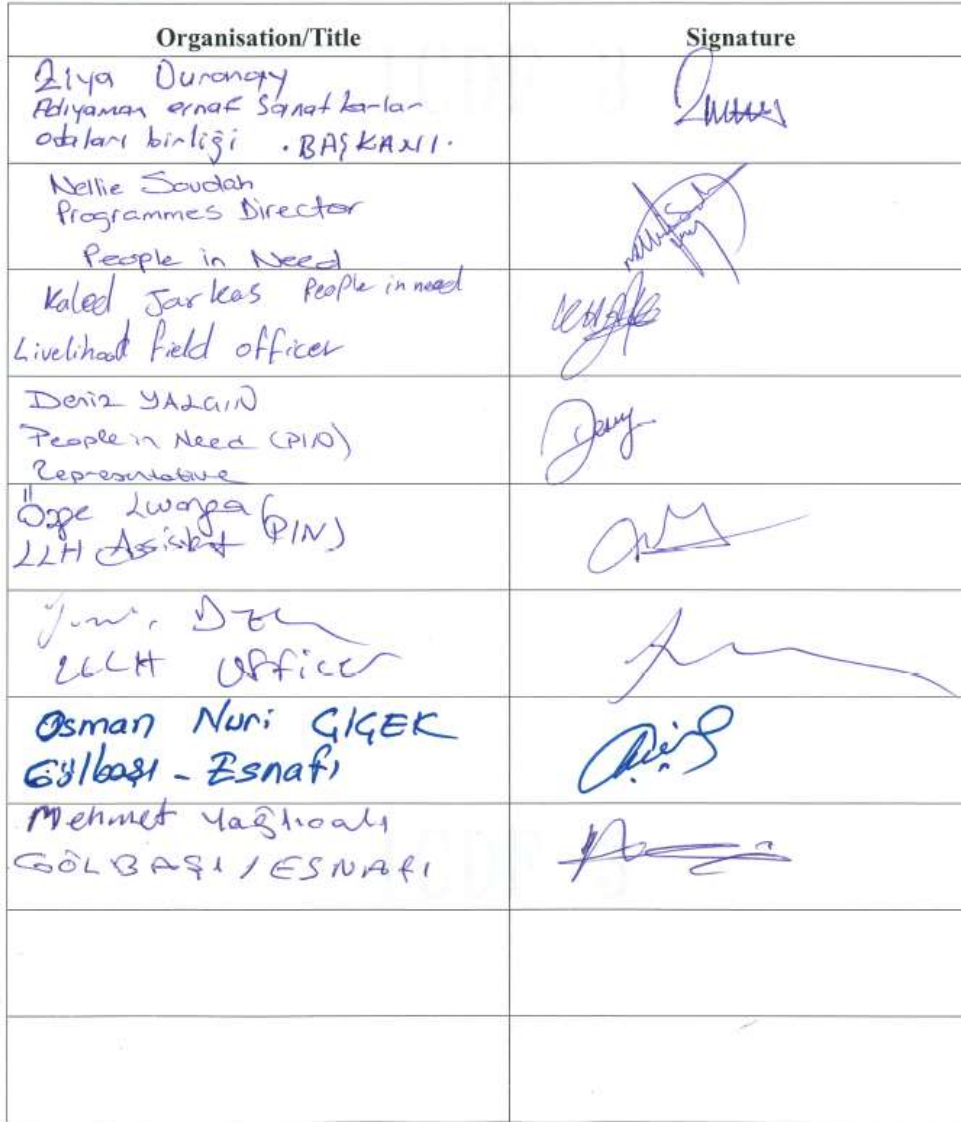 Organisation/Title Signature
Ziya Durançay
Adıyaman esnaf Sanatkarlar
odaları birliği .BAŞKANI.
Nellie Soudah
Programmes Director
People in Need
Kaled Jarkas People in need
Livelihood field officer
Deniz YALÇIN
People in Need (PIN)
Representative
Özge
LLH Assistant (PIN)
Officer
Osman Nuri ÇİÇEK
Gölbaşı - Esnafı
Mehmet
GÖLBAŞI / ESNAFI